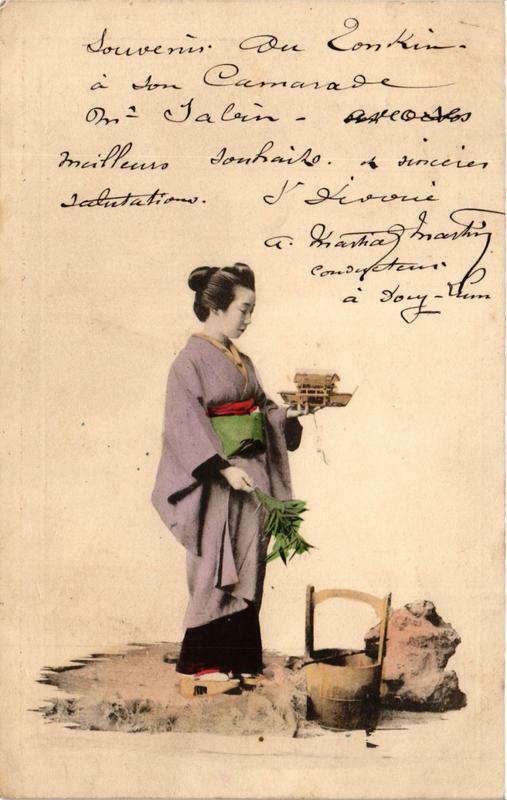 Souvenir du Tonkin.
à son Camarade
Mr Salin -
meilleurs souhaits. & sincères
salutations.
a. Martial Martin
conducteur
à